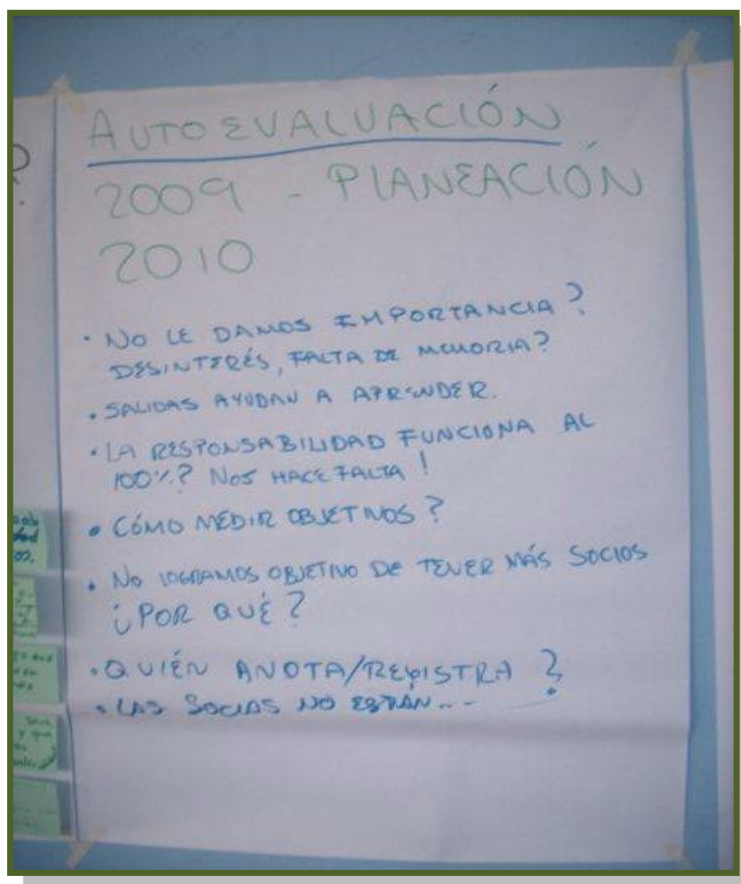 AUTOEVALUACIÓN
2009 - PLANEACIÓN
2010
· NO LE DAMOS IMPORTANCIA?
DESINTERÉS, FALTA DE MEMORIA?
· SALIDAS AYUDAN A APRENDER.
· LA RESPONSABILIDAD FUNCIONA AL
100%? NOS HACE FALTA!
· CÓMO MEDIR OBJETIVOS?
· NO LOGRAMOS OBJETIVO DE TENER MÁS SOCIOS
¿POR QUÉ?
· QUIÉN ANOTA/REGISTRA?
· LAS SOCIAS NO ESTÁN...